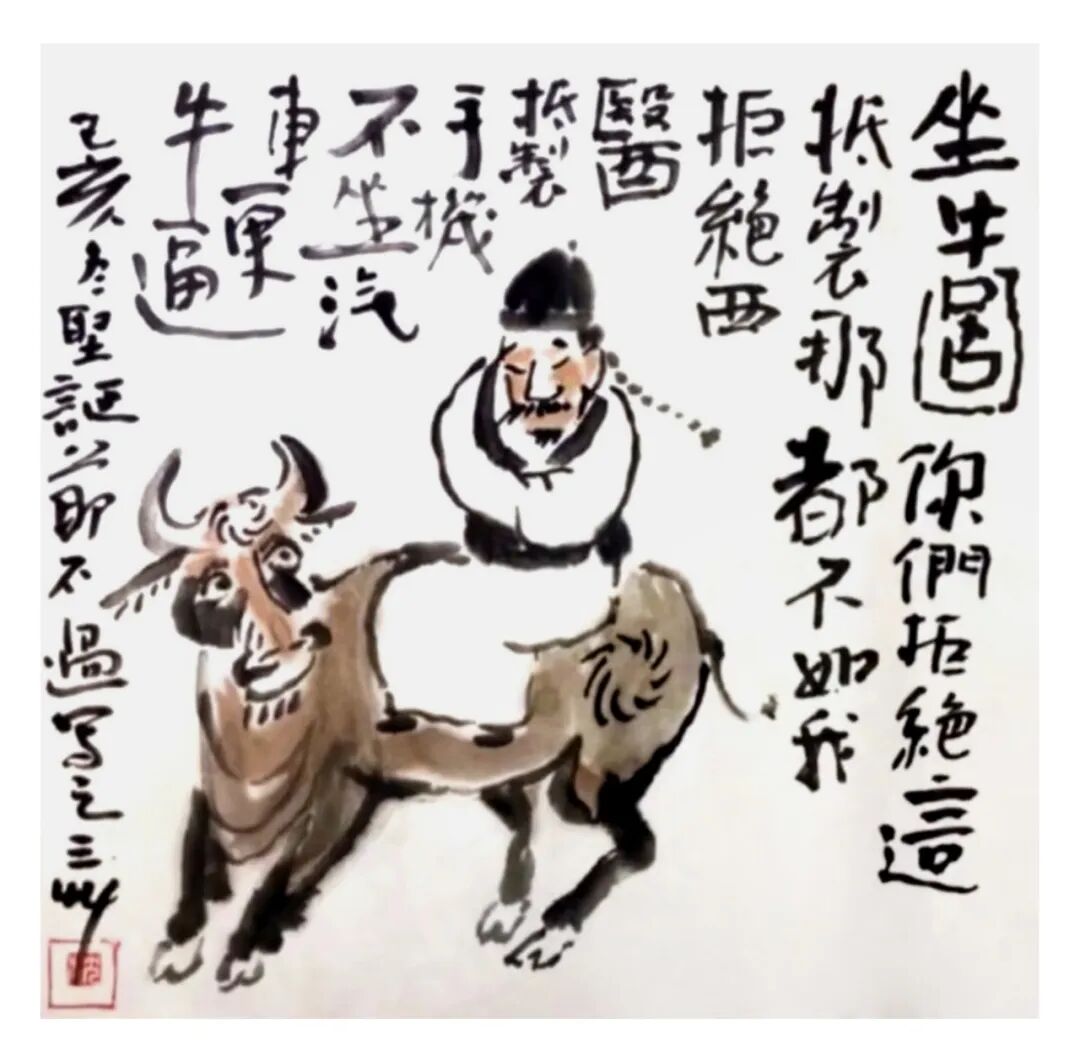 坐牛圖 你們拒絕這
抵製那都不如我
拒絕西
醫
抵製
手機
不坐汽
車更
牛逼
己亥冬聖誕節不過寫之三